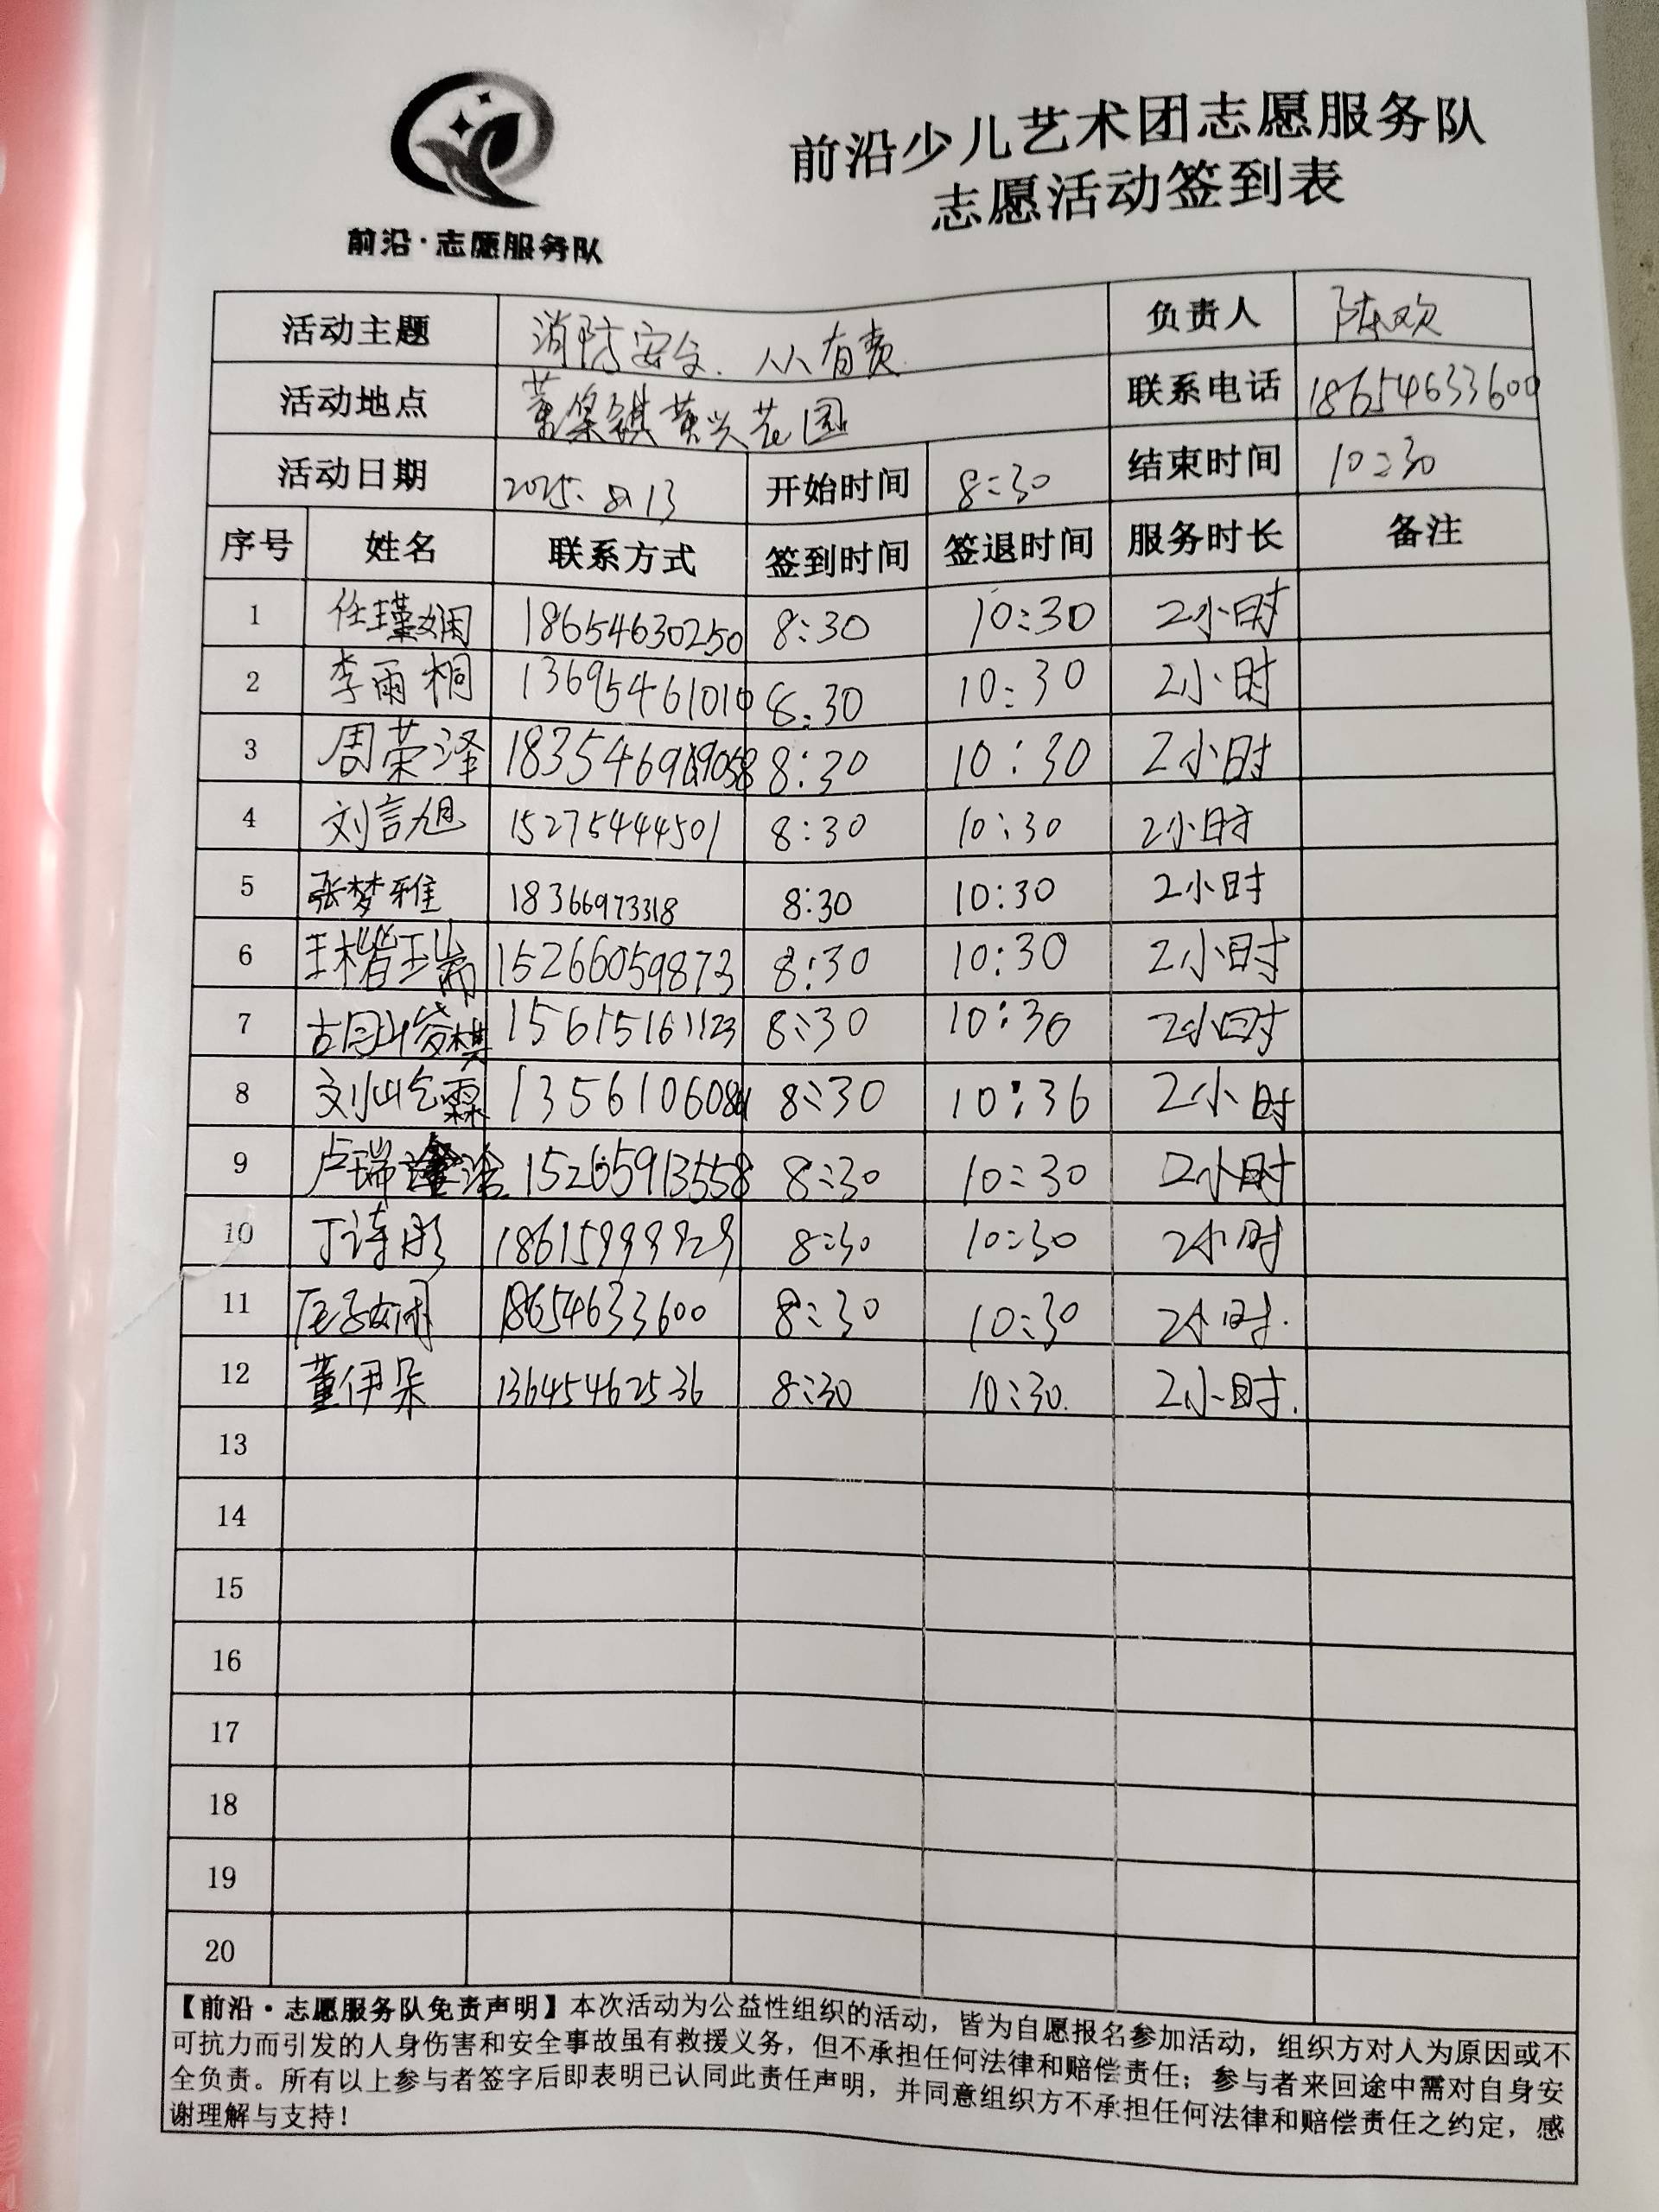 前沿·志愿服务队
前沿少儿艺术团志愿服务队
志愿活动签到表
活动主题 消防安全.人人有责. 负责人 陈欢
活动地点 董集镇黄兴花园 联系电话 18654633600
活动日期 2025.8.13 开始时间 8:30 结束时间 10:30
序号 姓名 联系方式 签到时间 签退时间 服务时长 备注
1 任瑾娴 18654630250 8:30 10:30 2小时
2 李雨桐 13695461010 8:30 10:30 2小时
3 周荣泽 8:30 10:30 2小时
4 刘言旭 15275444501 8:30 10:30 2小时
5 张梦雅 18366973318 8:30 10:30 2小时
6 王楷瑞 15266059873 8:30 10:30 2小时
7 胡崚棋 15615161123 8:30 10:30 2小时
8 刘屹霖 8:30 10:36 2小时
9 卢瑞涵 15265913558 8:30 10:30 2小时
10 丁诗彤 18615999929 8:30 10:30 2小时
11 18654633600 8:30 10:30 2小时.
12 董伊朵 13645462536 8:30 10:30. 2小时.
13
14
15
16
17
18
19
20
【前沿·志愿服务队免责声明】本次活动为公益性组织的活动，皆为自愿报名参加活动，组织方对人为原因或不
可抗力而引发的人身伤害和安全事故虽有救援义务，但不承担任何法律和赔偿责任；参与者来回途中需对自身安
全负责。所有以上参与者签字后即表明已认同此责任声明，并同意组织方不承担任何法律和赔偿责任之约定，感
谢理解与支持！